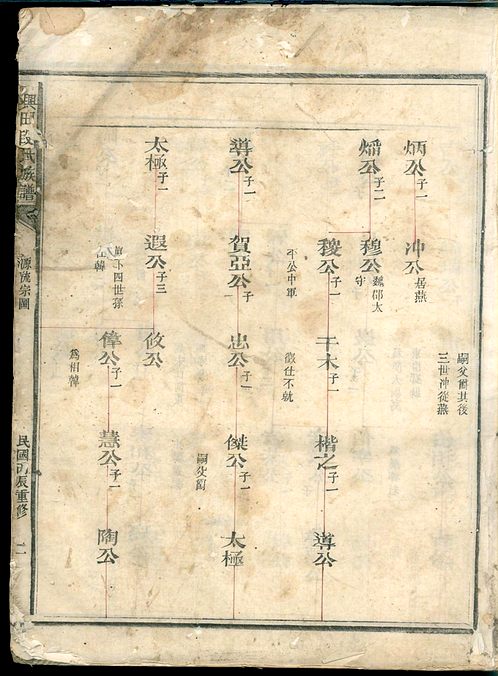 炳公子一
冲公居燕
嗣父爵其後
三世冲從燕
燔公子二
穆公魏鄴太守
稷公子一
干木子一
楷之子一
導公
不公中軍
徵仕不就
導公子一
賀亞公子一
忠公子一
傑公子一
太極
嗣父爵
太極子一
遐公子三
攸公
偉公子一
慧公子一
陶公
四世孫
為相韓
興田段氏族譜
源流宗圖
民國丙辰重修
二